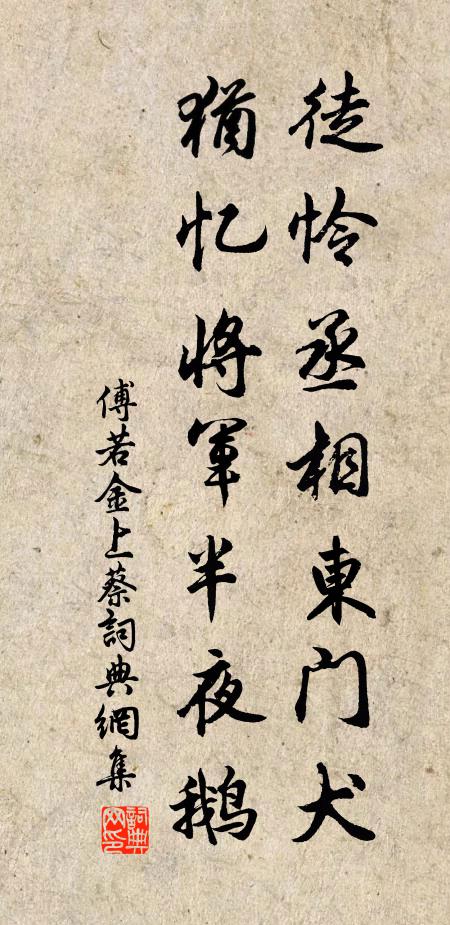 徒怜丞相東门犬
猶忆将军半夜鹅
傅若金上蔡詞典網集
詞典网印